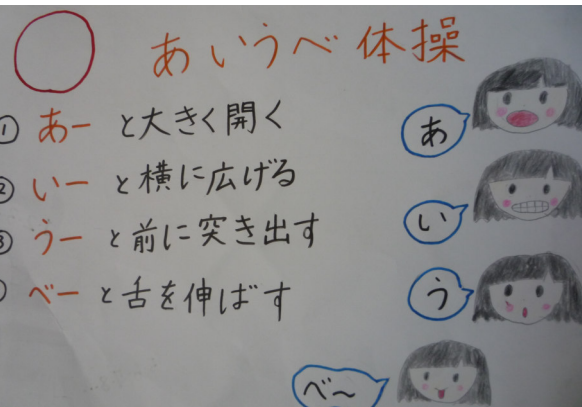 あいうべ体操
① あー と大きく開く
あ
② いー と横に広げる
い
③ うー と前に突き出す
う
べー と舌を伸ばす
べ〜